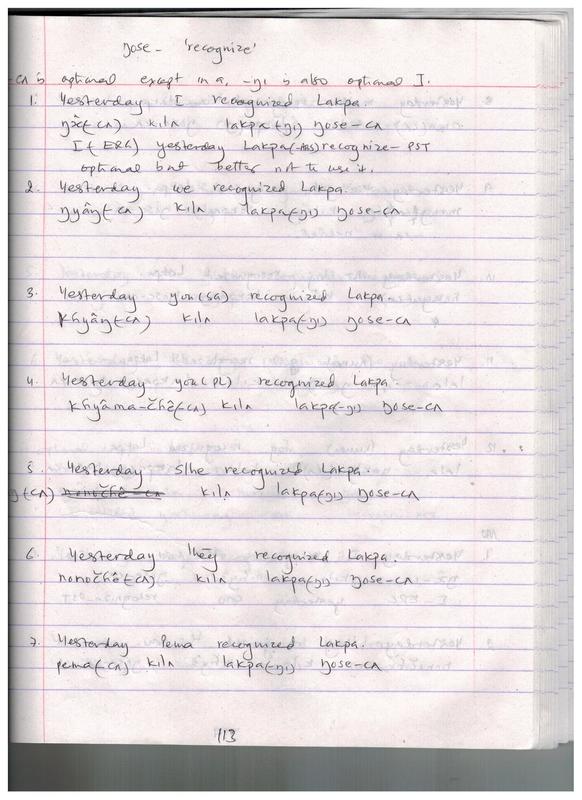 ŋose - 'recognize'
-cʌ is optional except in a, -ŋı is also optional I.
1. Yesterday I recognized Lakpa.
(-cʌ) kilʌ lakpa(-ŋı) ŋose-cʌ
I(-ERG) yesterday Lakpa recognize-PST
optional but better not to use it.
2. Yesterday we recognized Lakpa.
ŋyâŋ(-cʌ) kilʌ lakpa(-ŋı) ŋose-cʌ
3. Yesterday you(SG) recognized Lakpa.
khyâŋ(-cʌ) kilʌ lakpa(-ŋı) ŋose-cʌ
4. Yesterday you(PL) recognized Lakpa.
khyâma-čhê(-cʌ) kilʌ lakpa(-ŋı) ŋose-cʌ
5. Yesterday S/he recognized Lakpa.
(-cʌ) kilʌ lakpa(-ŋı) ŋose-cʌ
6. Yesterday they recognized Lakpa.
nonočhê(-cʌ) kilʌ lakpa(-ŋı) ŋose-cʌ
7. Yesterday Pema recognized Lakpa.
pema(-cʌ) kilʌ lakpa(-ŋı) ŋose-cʌ
113